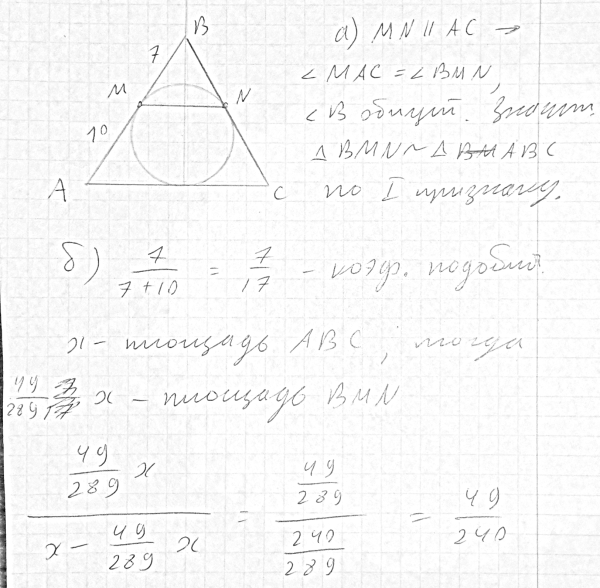 B
7
M
N
10
A
C
а) MN || AC →
∠ MAC = ∠ BMN,
∠ B общий. Значит.
△ BMN ~ △ ABC
по I признаку.
б) 7/(7+10) = 7/17 – коэф. подобия.
x – площадь ABC, тогда
49/289 x – площадь BMN
(49/289 x)/(x – 49/289 x) = (49/289)/(240/289) = 49/240